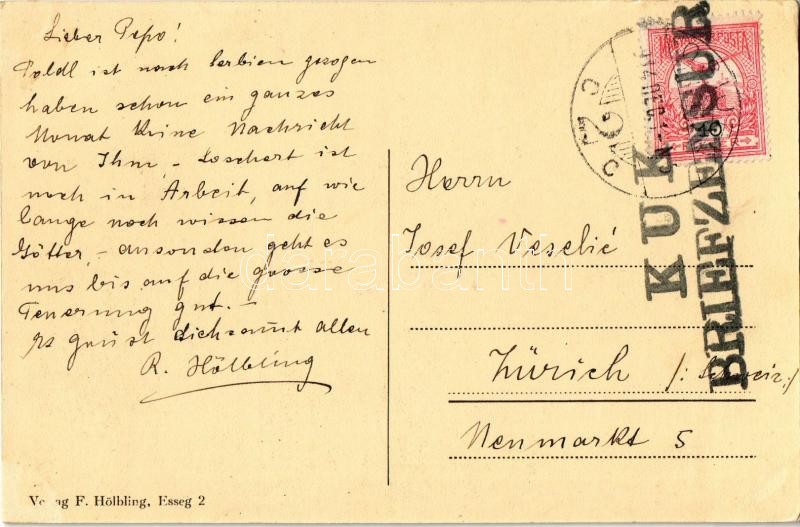 Lieber Pepo!
Poldl ist nach Serbien gezogen
haben schon ein ganzes
Monat keine Nachricht
von Ihm, - Loschert ist
noch in Arbeit, auf wie
lange noch wissen die
Götter, - ansonsten geht es
uns bis auf die grosse
Teuerung gut. -
Es grüst dich samt allen
R. Hölbling
Verlag F. Hölbling, Esseg 2
K U K
BRIEFZENSUR
Herrn
Josef Veselić
Zürich /: Schweiz :/
Neumarkt 5
darabanth